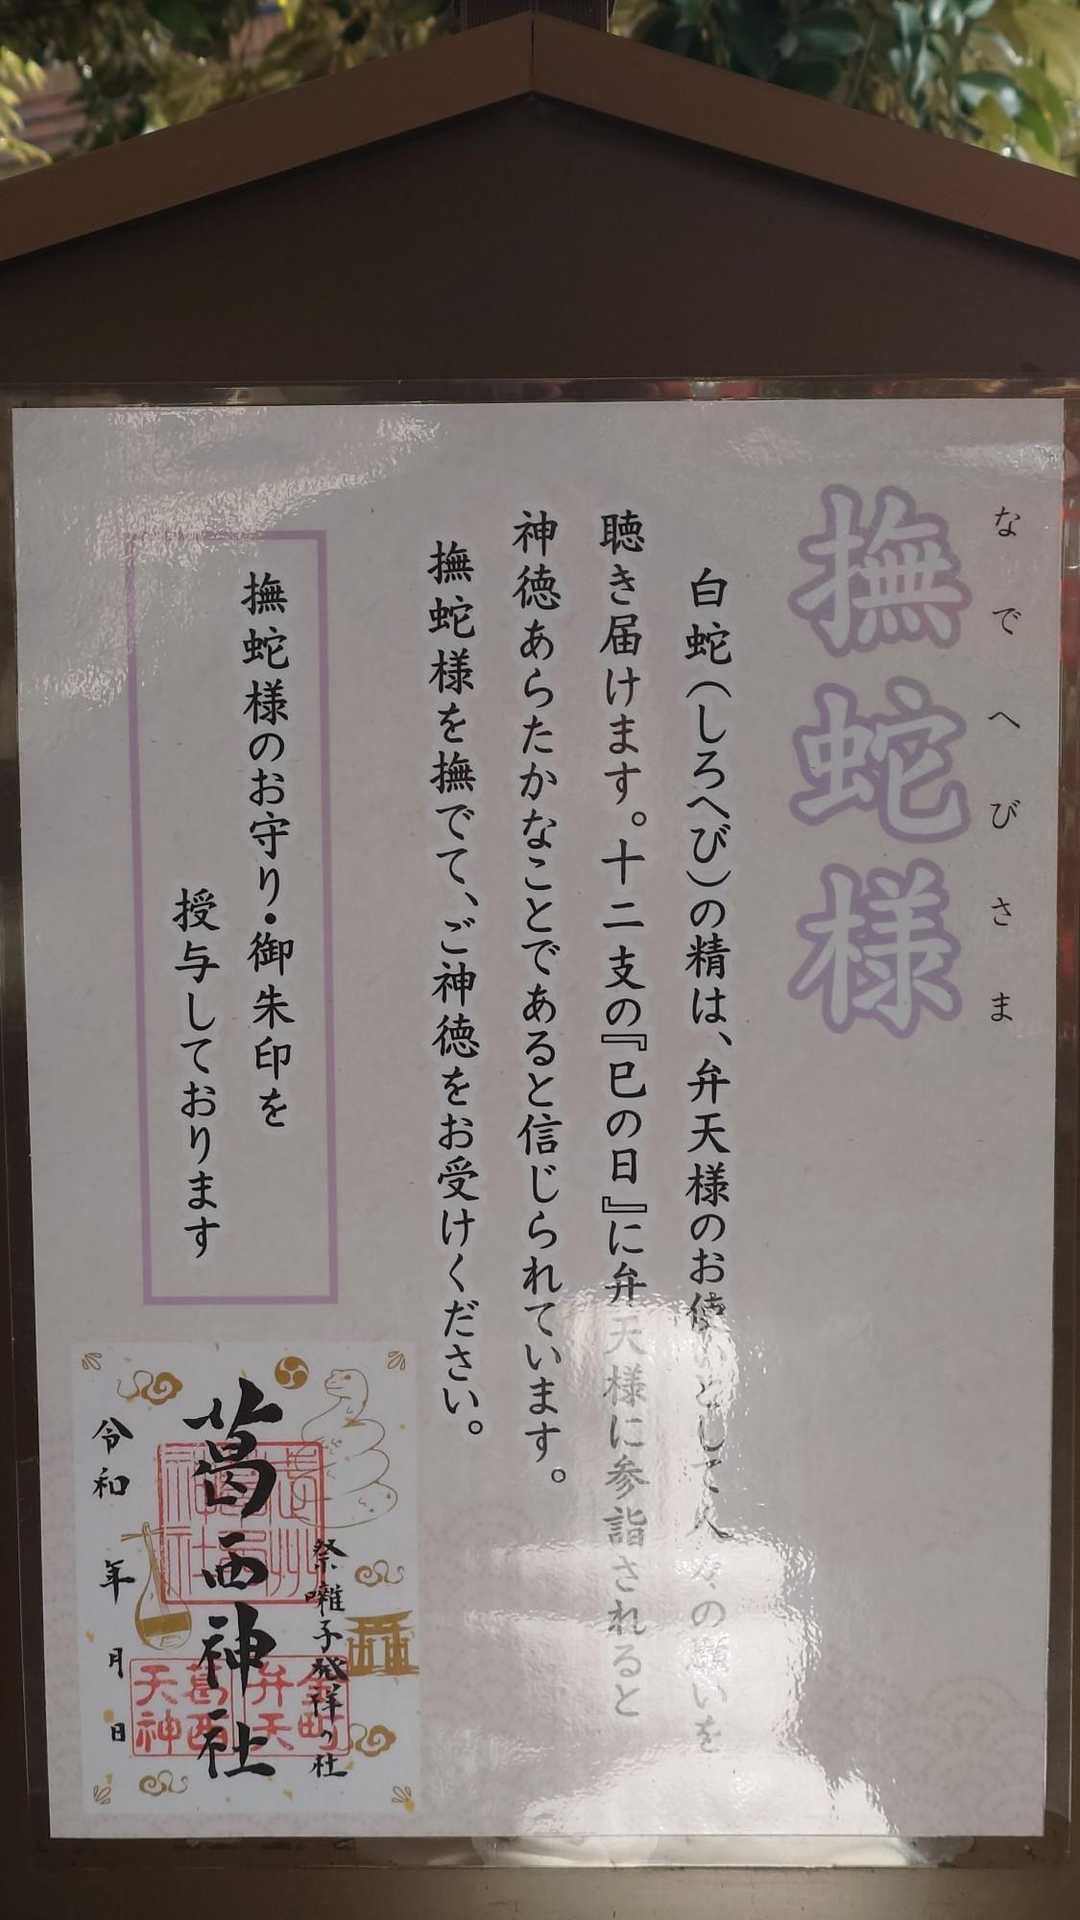 撫蛇様
なでへびさま
白蛇(しろへび)の精は、弁天様のお使いとして人々の願いを
聴き届けます。十二支の『巳の日』に弁天様に参詣されると
神徳あらたかなことであると信じられています。
撫蛇様を撫でて、ご神徳をお受けください。
撫蛇様のお守り・御朱印を
授与しております
祭囃子発祥の社
葛西神社
令和 年 月 日
金町
弁天
葛西
天神